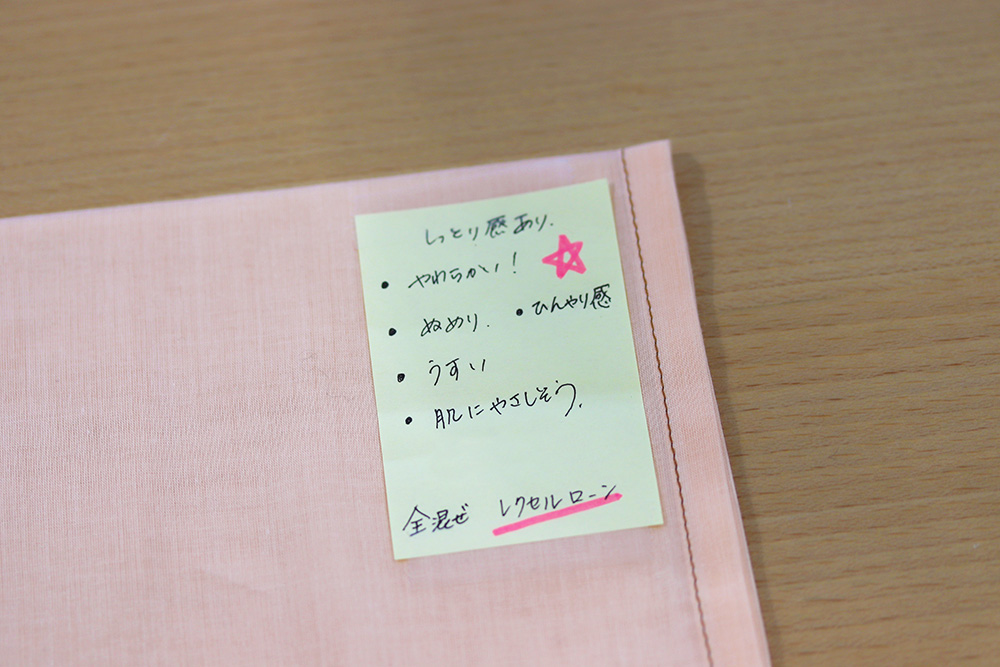 しっとり感あり.
• やわらかい!
• ぬめり. • ひんやり感
• うすい
• 肌にやさしそう.
全混ぜ レクセルローン